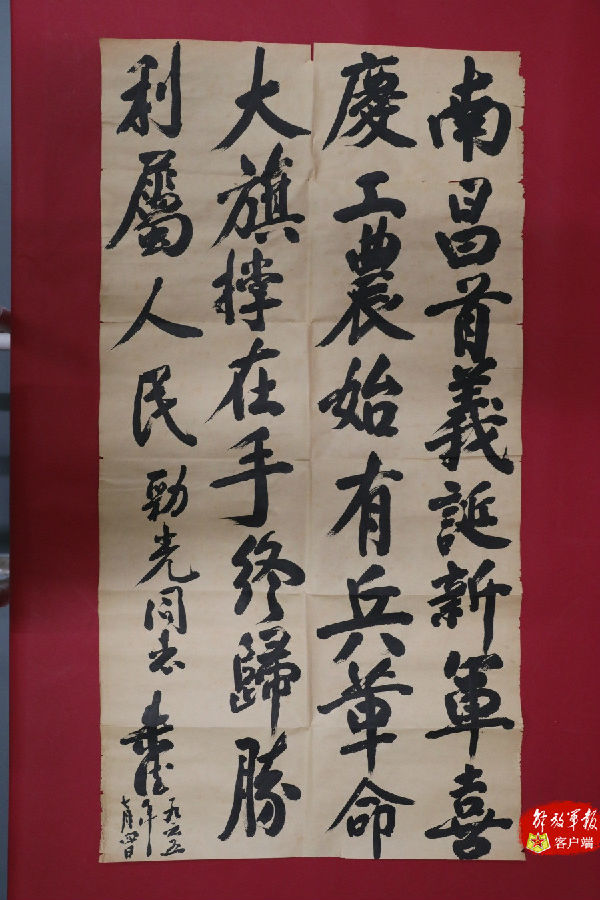 南昌首義誕新軍喜
慶工農始有兵革命
大旗撑在手終歸勝
利屬人民勁光同志
朱德
一九六五
年
七月四日
解放军报
客户端